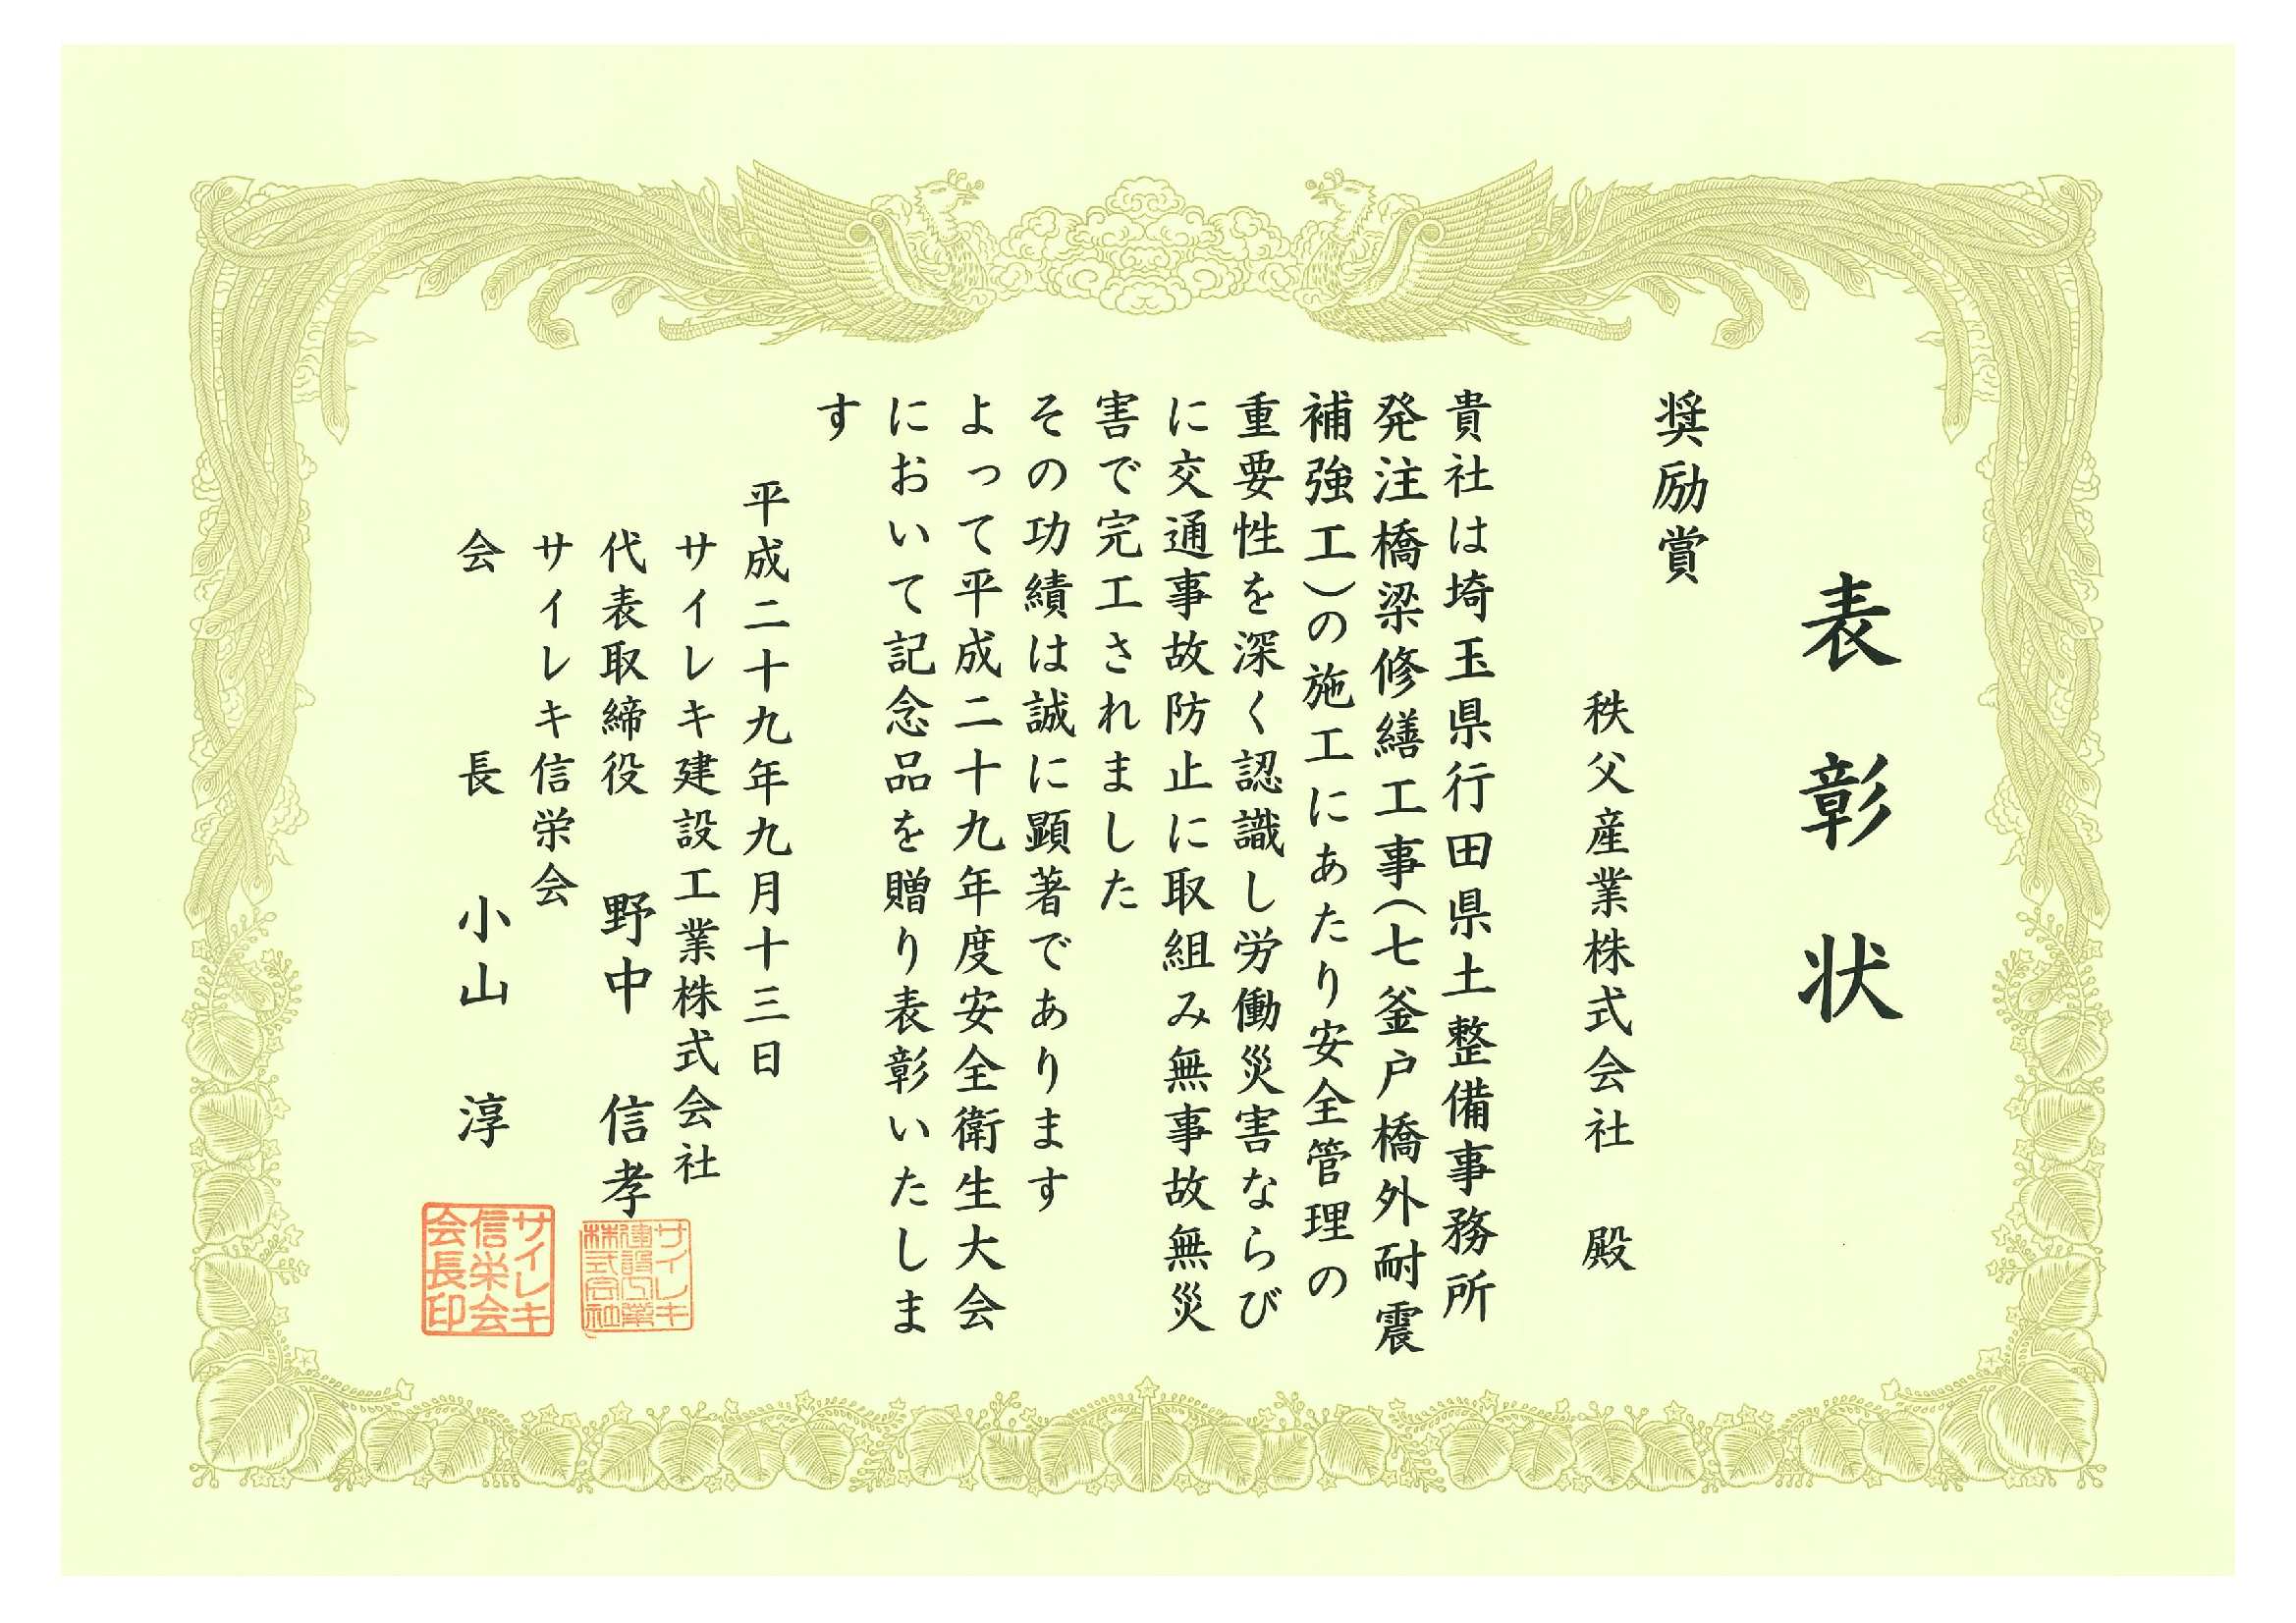 表彰状
奨励賞
秩父産業株式会社 殿
貴社は埼玉県行田県土整備事務所
発注橋梁修繕工事(七釜戸橋外耐震
補強工)の施工にあたり安全管理の
重要性を深く認識し労働災害ならび
に交通事故防止に取組み無事故無災
害で完工されました
その功績は誠に顕著であります
よって平成二十九年度安全衛生大会
において記念品を贈り表彰いたしま
す
平成二十九年九月十三日
サイレキ建設工業株式会社
代表取締役 野中 信孝
サイレキ信栄会
会長 小山 淳
サイレキ
建設工業
株式会社
サイレキ
信栄会
会長印